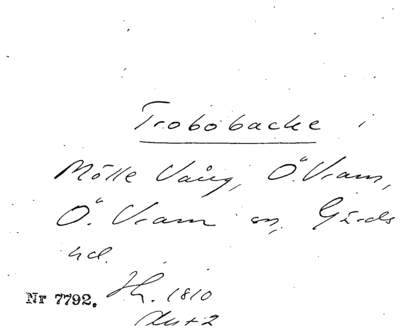 Trobobacke i
Mölle Vång, Ö. Vram,
Ö. Vram sn, Gärds
hd.
Nr 7792. Hh. 1810
Akt 2